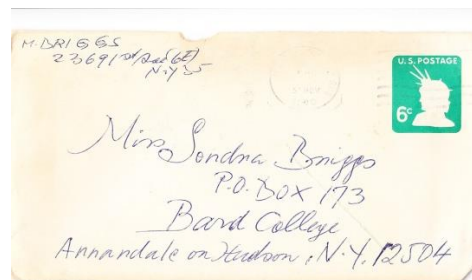 M. BRIGGS
N.Y 35
U.S. POSTAGE
6c
Miss Sondra Briggs
P.O. BOX 173
Bard College
Annandale on Hudson, N.Y. 12504